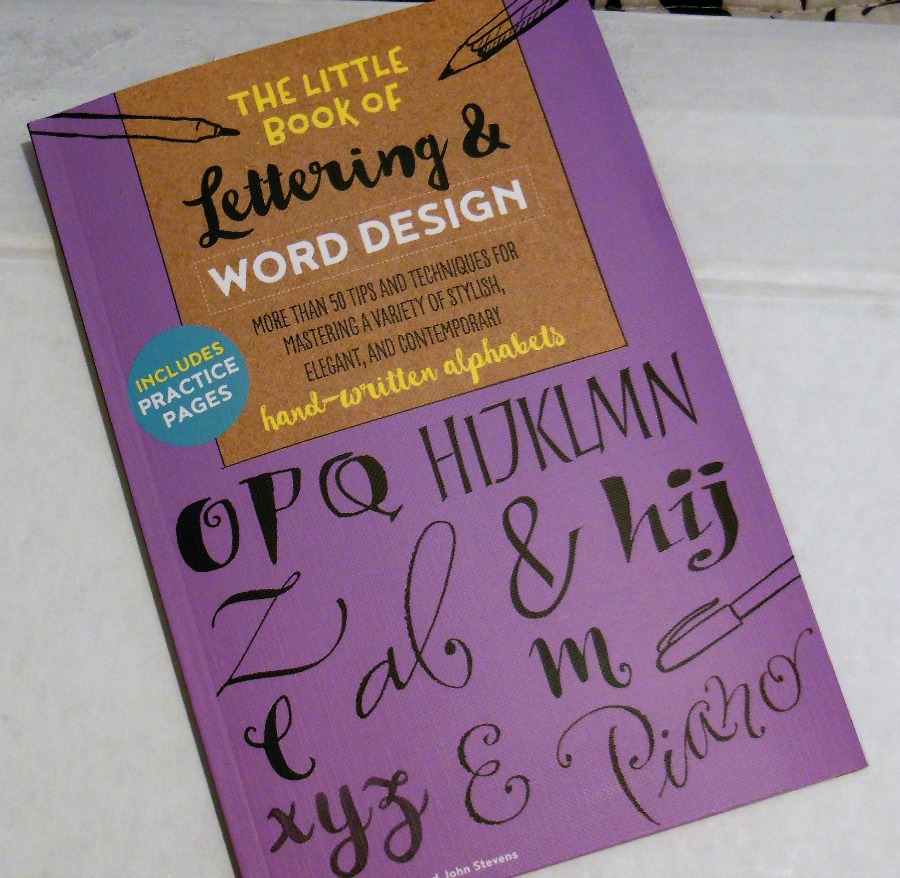 THE LITTLE
BOOK OF
Lettering &
WORD DESIGN
MORE THAN 50 TIPS AND TECHNIQUES FOR
MASTERING A VARIETY OF STYLISH,
ELEGANT, AND CONTEMPORARY
hand-written alphabets
INCLUDES
PRACTICE
PAGES
OPQ HIJKLMN
Z al & hij
e m
xyz E Piano
John Stevens